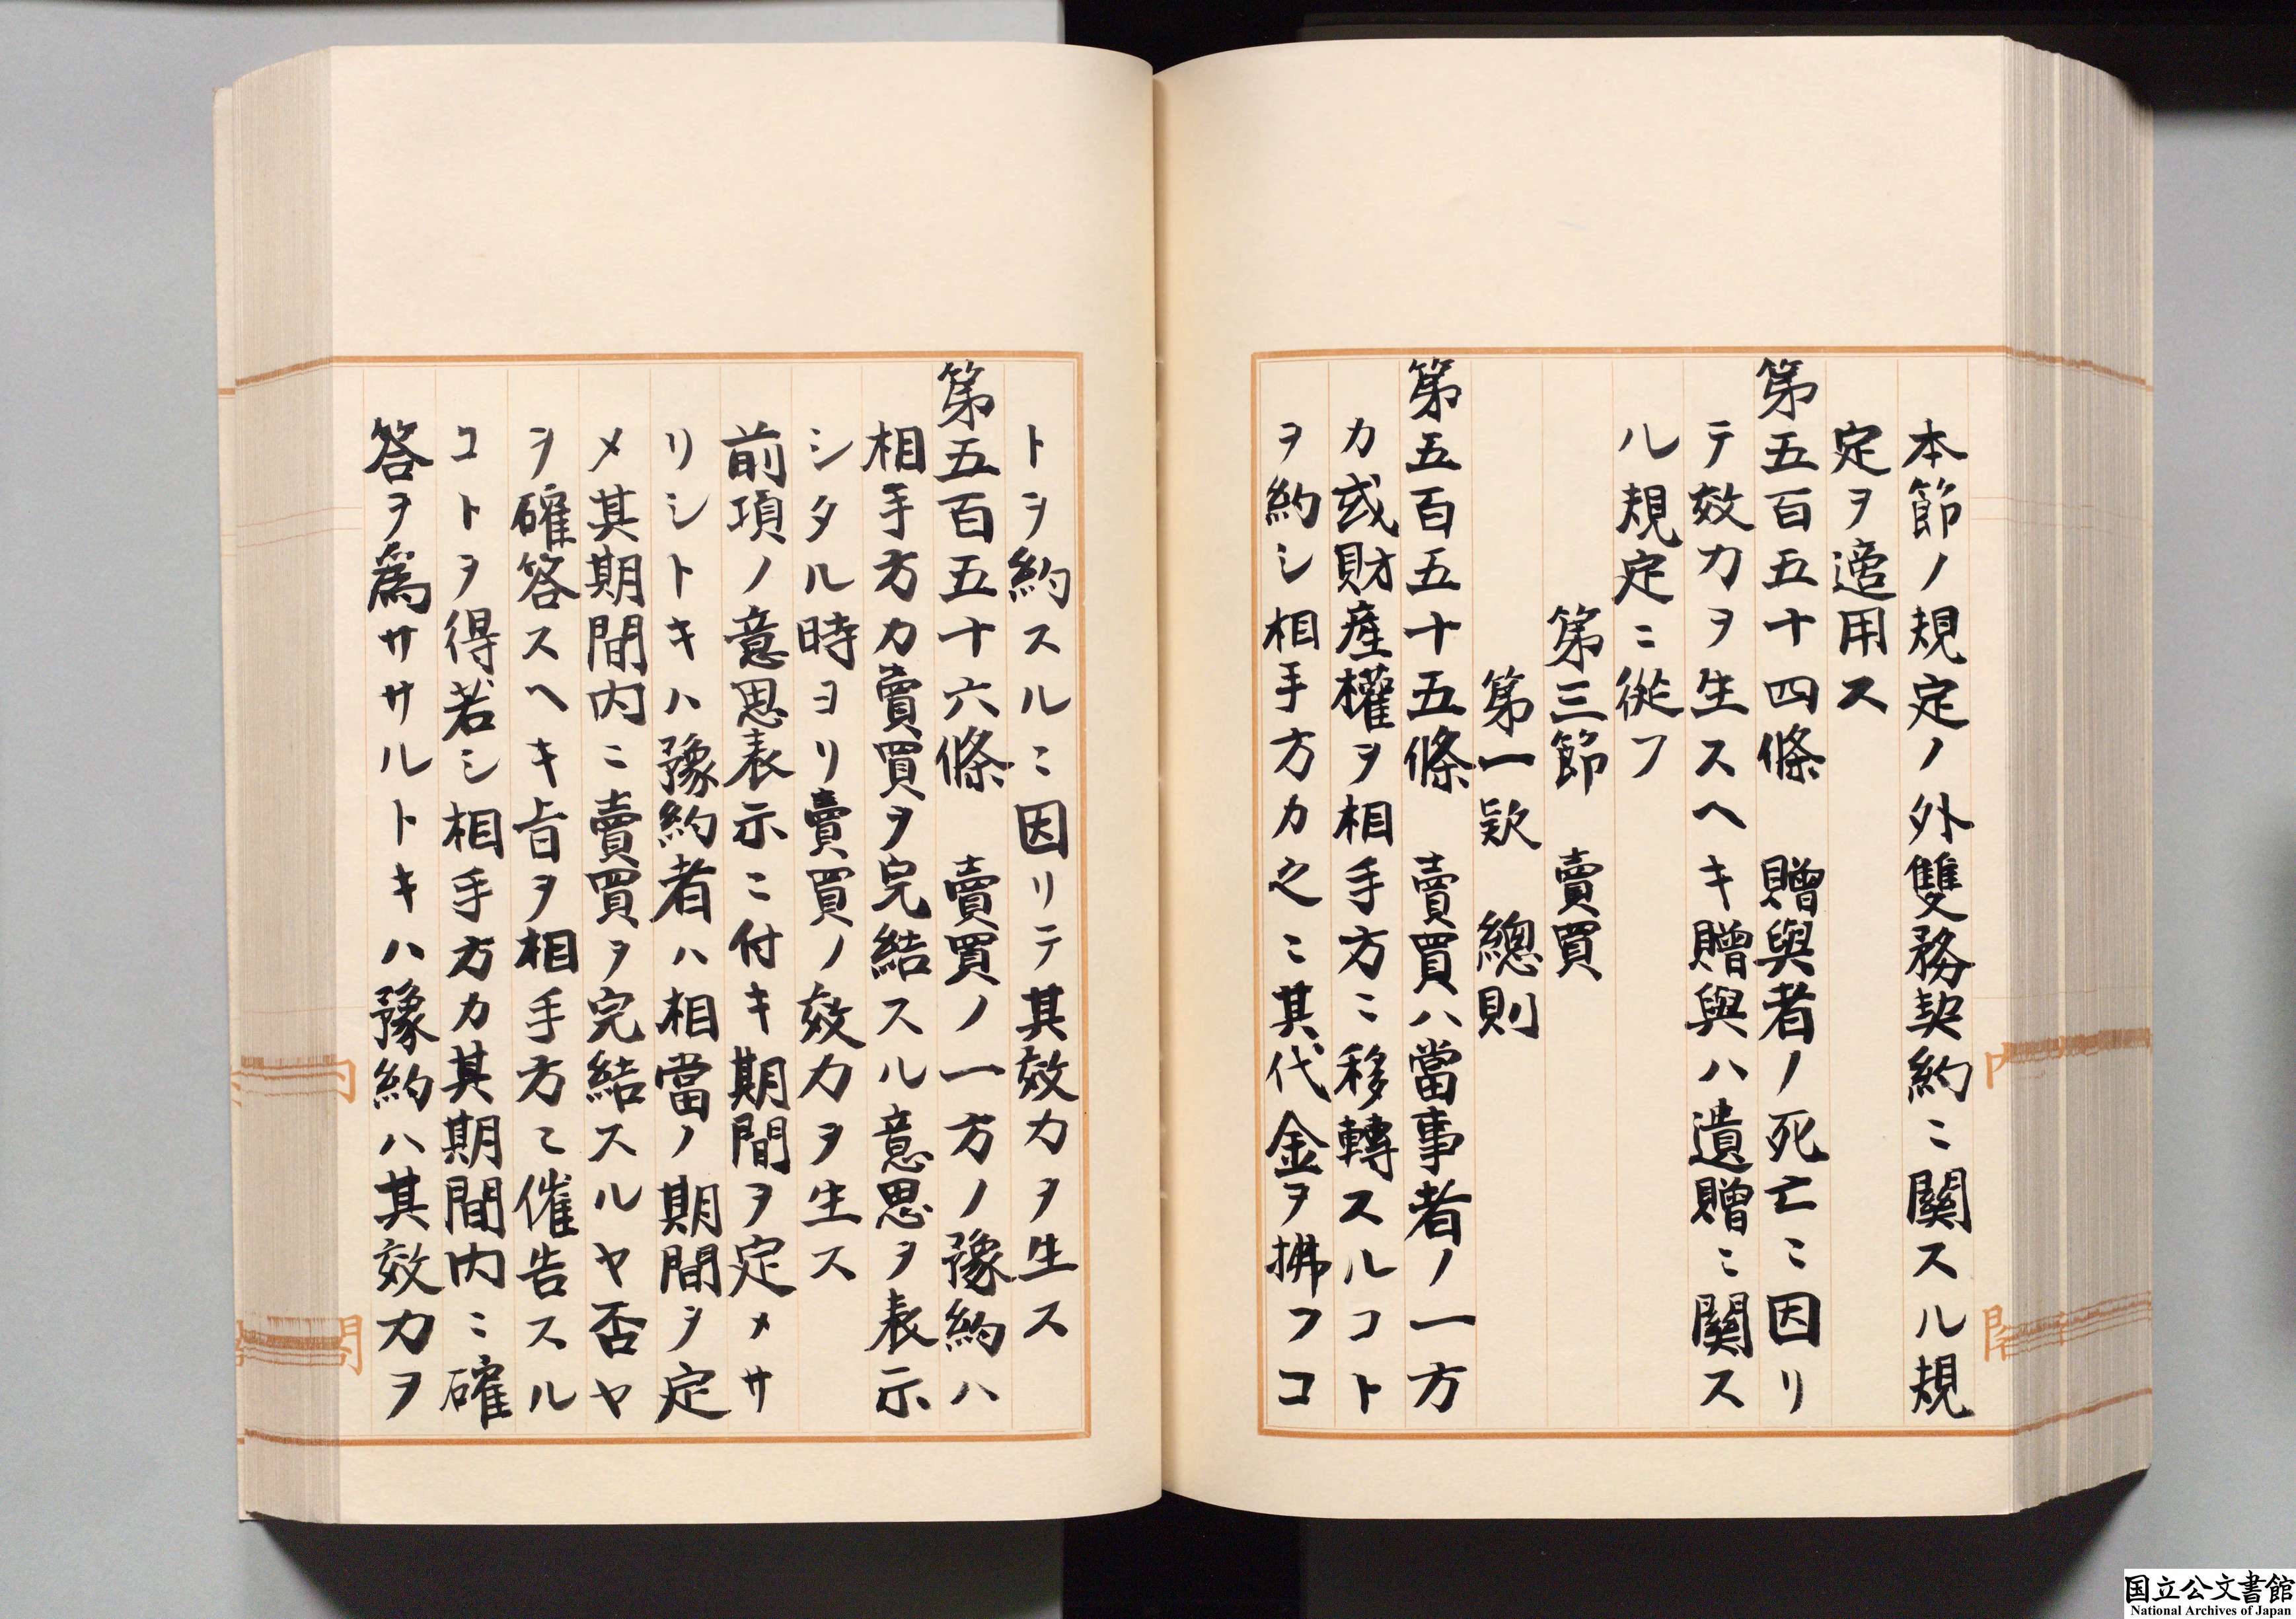 本節ノ規定ノ外雙務契約ニ關スル規
定ヲ適用ス
第五百五十四條　贈與者ノ死亡ニ因リ
テ效力ヲ生スヘキ贈與ハ遺贈ニ關ス
ル規定ニ從フ
第三節　賣買
第一款　總則
第五百五十五條　賣買ハ當事者ノ一方
カ或財產權ヲ相手方ニ移轉スルコト
ヲ約シ相手方カ之ニ其代金ヲ拂フコ
トヲ約スルニ因リテ其效力ヲ生ス
第五百五十六條　賣買ノ一方ノ豫約ハ
相手方カ賣買ヲ完結スル意思ヲ表示
シタル時ヨリ賣買ノ效力ヲ生ス
前項ノ意思表示ニ付キ期間ヲ定メサ
リシトキハ豫約者ハ相當ノ期間ヲ定
メ其期間內ニ賣買ヲ完結スルヤ否ヤ
ヲ確答スヘキ旨ヲ相手方ニ催告スル
コトヲ得若シ相手方カ其期間內ニ確
答ヲ爲ササルトキハ豫約ハ其效力ヲ
国立公文書館
National Archives of Japan